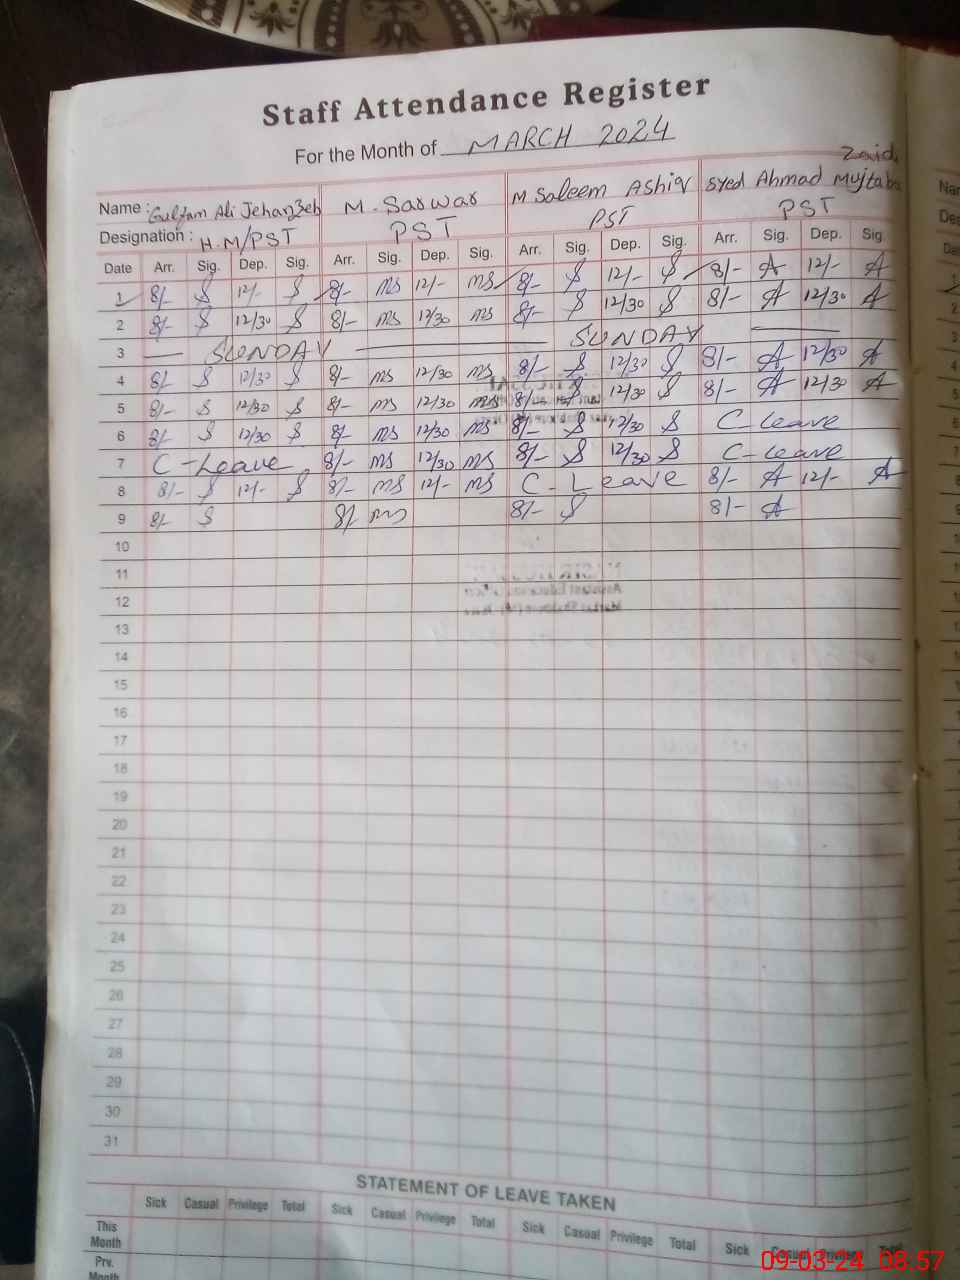 Staff Attendance Register
For the Month of MARCH 2024
Zaid
Name : Gulfam Ali Jehanzeb M. Sarwar M Saleem Ashiq Syed Ahmad Mujtaba
Designation : H.M/PST PST PST PST
Date Arr. Sig. Dep. Sig. Arr. Sig. Dep. Sig. Arr. Sig. Dep. Sig. Arr. Sig. Dep. Sig.
1 8/- S 12/- S 8/- MS 12/- MS 8/- S 12/- S 8/- A 12/- A
2 8/- S 12/30 S 8/- MS 12/30 MS 8/- S 12/30 S 8/- A 12/30 A
3 — SUNDAY — SUNDAY —
4 8/- S 12/30 S 8/- MS 12/30 MS 8/- S 12/30 S 8/- A 12/30 A
5 8/- S 12/30 S 8/- MS 12/30 MS 8/- S 12/30 S 8/- A 12/30 A
6 8/- S 12/30 S 8/- MS 12/30 MS 8/- S 12/30 S C-Leave
7 C-Leave 8/- MS 12/30 MS 8/- S 12/30 S C-Leave
8 8/- S 12/- S 8/- MS 12/- MS C-Leave 8/- A 12/- A
9 8/- S 8/- MS 8/- S 8/- A
10
11
12
13
14
15
16
17
18
19
20
21
22
23
24
25
26
27
28
29
30
31
STATEMENT OF LEAVE TAKEN
Sick Casual Privilege Total Sick Casual Privilege Total Sick Casual Privilege Total Sick Casual Privilege Total
This Month
Prv. Month
09-03-24 08:57